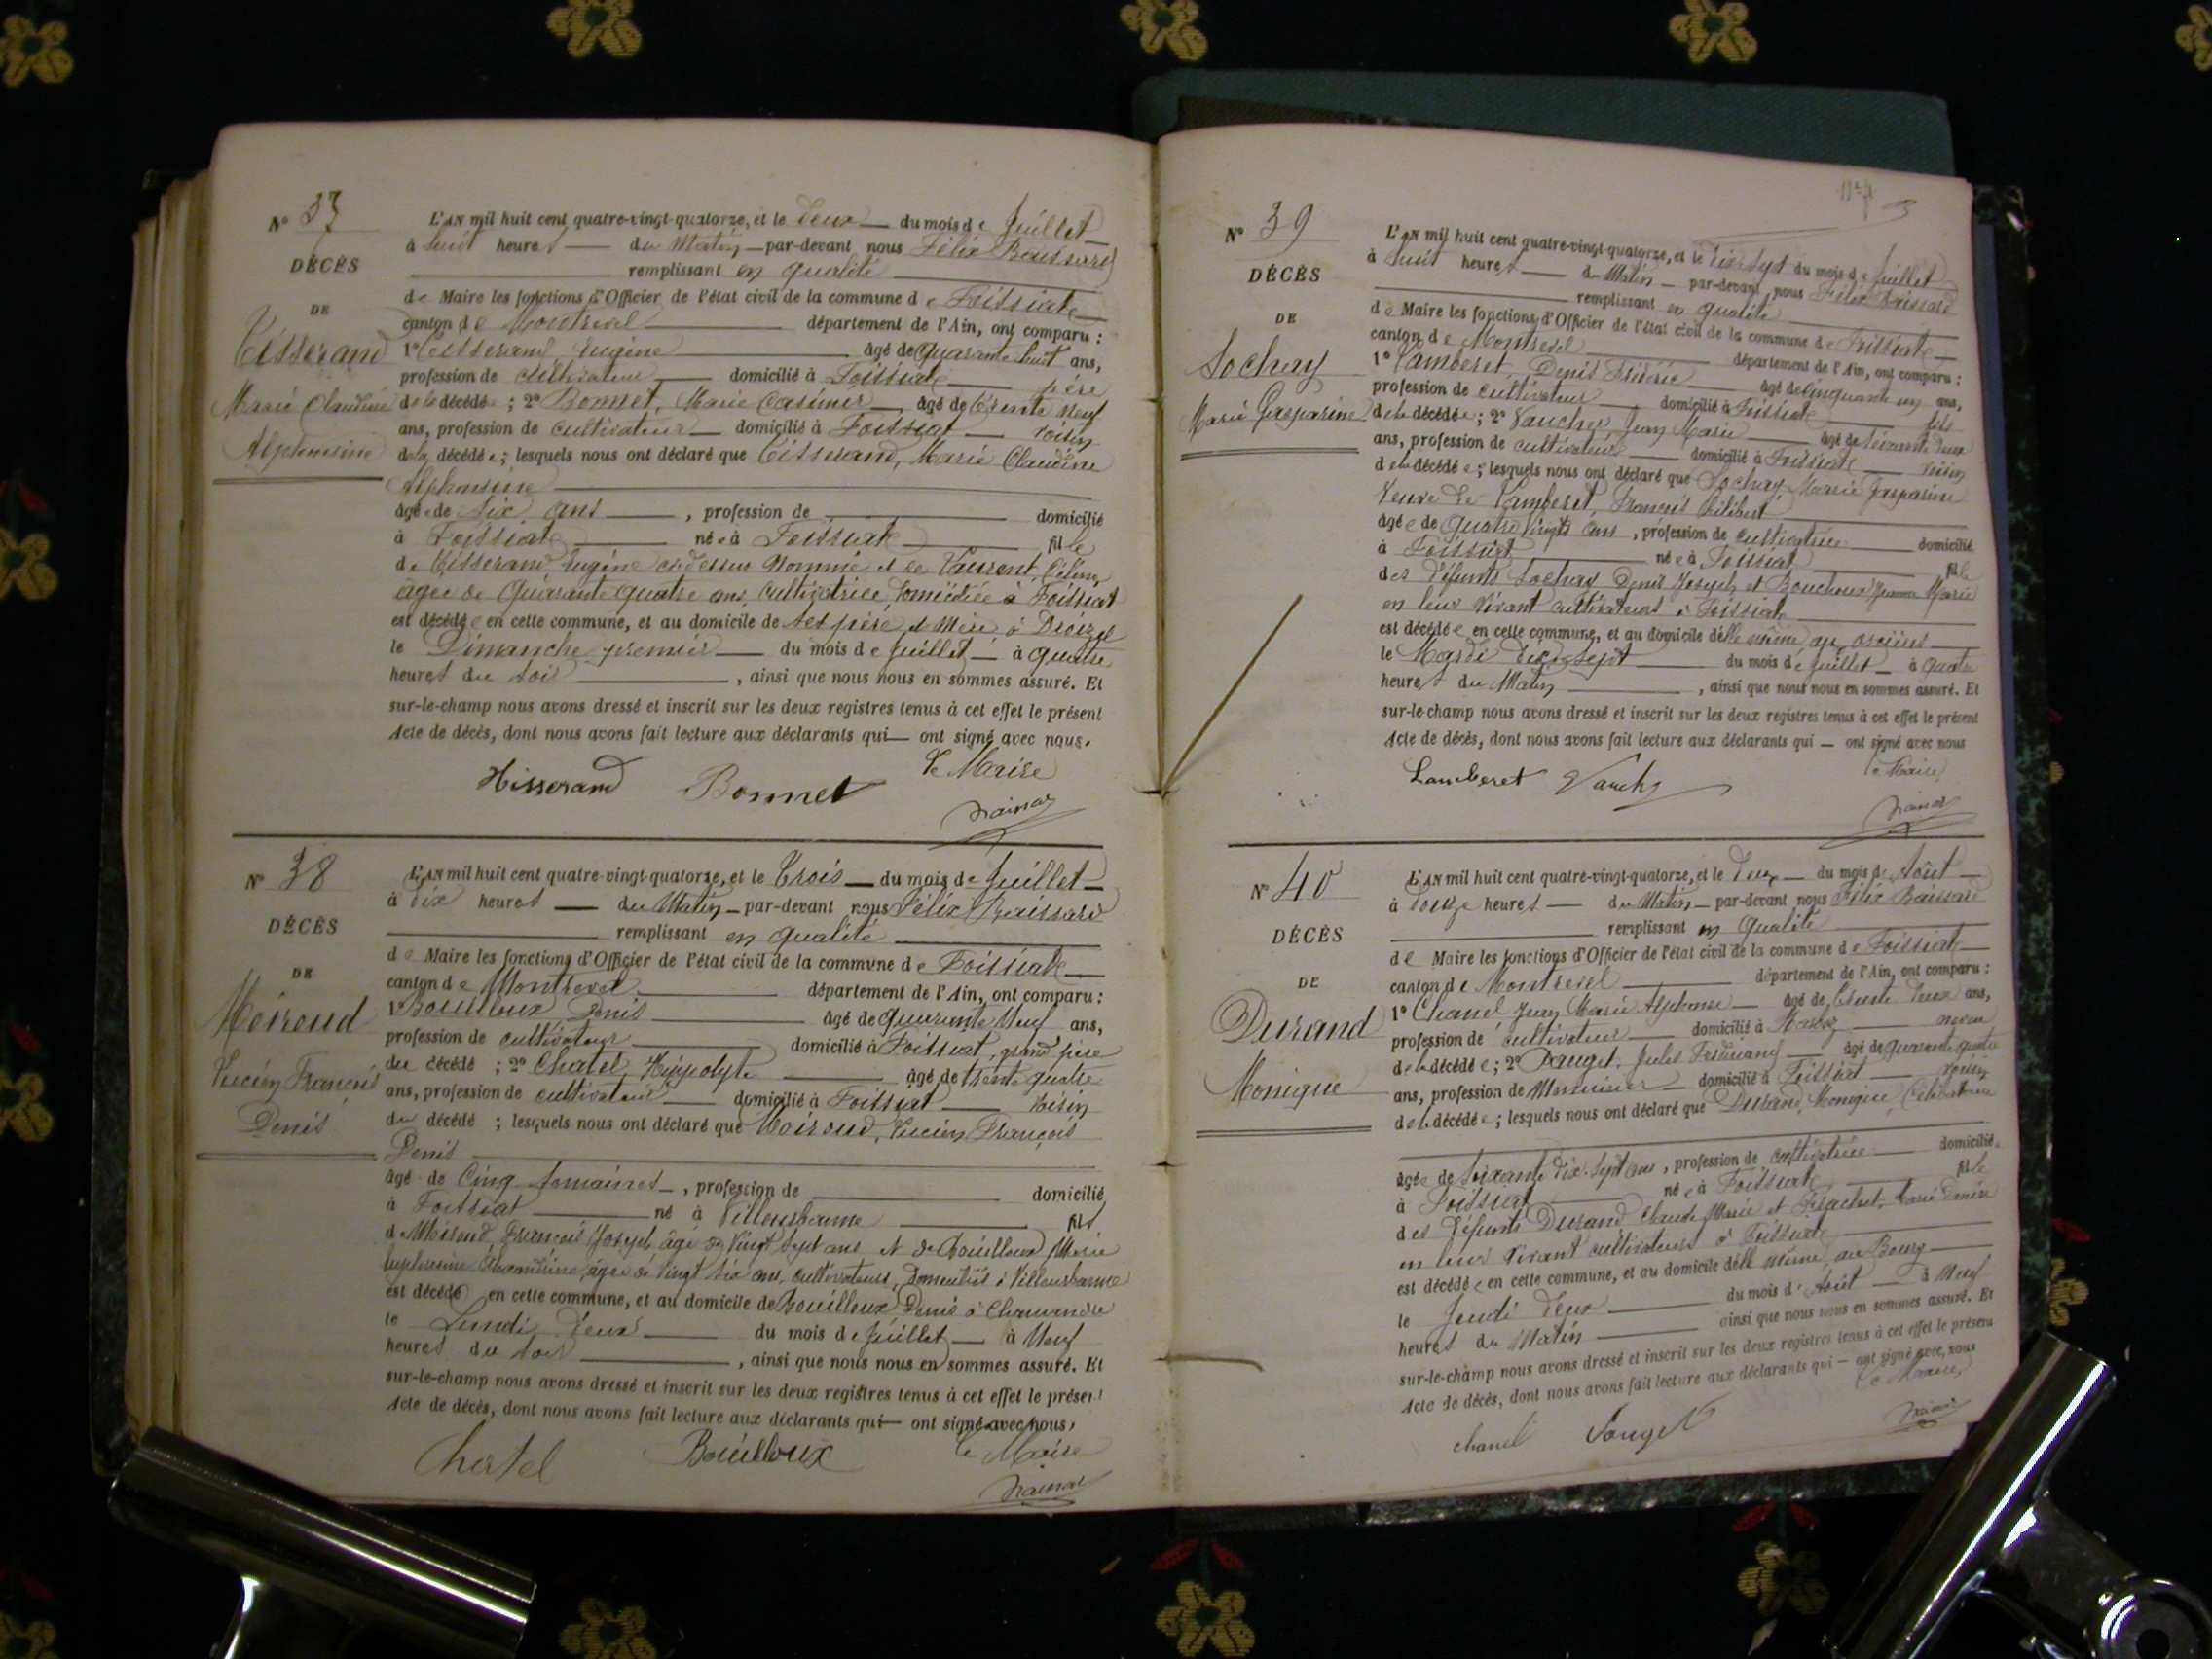 N° 37
DÉCÈS
DE
Tisserand
Marie Claudine
Alphonsine
L'AN mil huit cent quatre-vingt-quatorze, et le deux du mois de Juillet
à huit heures du Matin par-devant nous Félix
remplissant en qualité
de Maire les fonctions d'Officier de l'état civil de la commune de Foissiat
canton de Montrevel département de l'Ain, ont comparu :
1° Tisserand, Eugène âgé de quarante huit ans,
profession de cultivateur domicilié à Foissiat père
de la décédée ; 2° Bonnet, Marie Casimir âgé de trente neuf
ans, profession de cultivateur domicilié à Foissiat voisin
de la décédée ; lesquels nous ont déclaré que Tisserand, Marie Claudine
Alphonsine
âgée de six ans, profession de domicilié
à Foissiat née à Foissiat fille
de Tisserand Eugène ci-dessus nommé et de Laurent,
âgée de quarante quatre ans, cultivatrice, domiciliée à Foissiat
est décédée en cette commune, et au domicile de ses père et mère à
le Dimanche premier du mois de Juillet à quatre
heures du soir, ainsi que nous nous en sommes assuré. Et
sur-le-champ nous avons dressé et inscrit sur les deux registres tenus à cet effet le présent
Acte de décès, dont nous avons fait lecture aux déclarants qui ont signé avec nous.
Le Maire
Tisserand Bonnet
N° 38
DÉCÈS
DE
Moiroud
Lucien François
Denis
L'AN mil huit cent quatre-vingt-quatorze, et le Trois du mois de Juillet
à dix heures du Matin par-devant nous Félix
remplissant en qualité
de Maire les fonctions d'Officier de l'état civil de la commune de Foissiat
canton de Montrevel département de l'Ain, ont comparu :
1° Bouilloux Denis âgé de quarante neuf ans,
profession de cultivateur domicilié à Foissiat, grand père
du décédé ; 2° Chatel, Hippolyte âgé de trente quatre
ans, profession de cultivateur domicilié à Foissiat voisin
du décédé ; lesquels nous ont déclaré que Moiroud, Lucien François
Denis
âgé de Cinq Semaines, profession de domicilié
à Foissiat né à Villeurbanne fils
de Moiroud, François Joseph, âgé de vingt sept ans et de Bouilloux Marie
Euphrasine Alexandrine, âgée de vingt six ans, cultivateurs, domiciliés à Villeurbanne
est décédé en cette commune, et au domicile de Bouilloux Denis à
le Lundi deux du mois de Juillet à Neuf
heures du soir, ainsi que nous nous en sommes assuré. Et
sur-le-champ nous avons dressé et inscrit sur les deux registres tenus à cet effet le présent
Acte de décès, dont nous avons fait lecture aux déclarants qui ont signé avec nous,
Chatel Bouilloux Le Maire
N° 39
DÉCÈS
DE
Sochay
Marie Gasparine
L'AN mil huit cent quatre-vingt-quatorze, et le dix sept du mois de Juillet
à huit heures du Matin par-devant nous Félix
remplissant en qualité
de Maire les fonctions d'Officier de l'état civil de la commune de Foissiat
canton de Montrevel département de l'Ain, ont comparu :
1° Lamberet, Denis Frédéric âgé de cinquante un ans,
profession de cultivateur domicilié à Foissiat fils
de la décédée ; 2° Vaucher, Jean Marie âgé de soixante deux
ans, profession de cultivateur domicilié à Foissiat voisin
de la décédée ; lesquels nous ont déclaré que Sochay, Marie Gasparine
Veuve de Lamberet, François Philibert
âgée de quatre vingts ans, profession de cultivatrice domicilié
à Foissiat née à Foissiat fille
des défunts Sochay Denis Joseph et Bouchoux Jeanne Marie
en leur vivant cultivateurs à Foissiat
est décédée en cette commune, et au domicile d'elle même
le Mardi dix sept du mois de Juillet à quatre
heures du Matin, ainsi que nous nous en sommes assuré. Et
sur-le-champ nous avons dressé et inscrit sur les deux registres tenus à cet effet le présent
Acte de décès, dont nous avons fait lecture aux déclarants qui ont signé avec nous
Le Maire
Lamberet
N° 40
DÉCÈS
DE
Durand
Monique
L'AN mil huit cent quatre-vingt-quatorze, et le deux du mois d Août
à douze heures du Matin par-devant nous Félix
remplissant en qualité
de Maire les fonctions d'Officier de l'état civil de la commune de Foissiat
canton de Montrevel département de l'Ain, ont comparu :
1° Chanel Jean Marie Alphonse âgé de trente deux ans,
profession de cultivateur domicilié à neveu
de la décédée ; 2° Jules Ferdinand âgé de quarante quatre
ans, profession de Menuisier domicilié à Foissiat voisin
de la décédée ; lesquels nous ont déclaré que Durand, Monique, Célibataire
âgée de soixante dix sept ans, profession de cultivatrice domicilié
à Foissiat née à Foissiat fille
des défunts Durand Claude Marie et
en leur vivant cultivateurs à Foissiat
est décédée en cette commune, et au domicile d'elle même, au Bourg
le Jeudi deux du mois d'Août à Neuf
heures du Matin ainsi que nous nous en sommes assuré. Et
sur-le-champ nous avons dressé et inscrit sur les deux registres tenus à cet effet le présent
Acte de décès, dont nous avons fait lecture aux déclarants qui ont signé avec nous
Le Maire
chanel